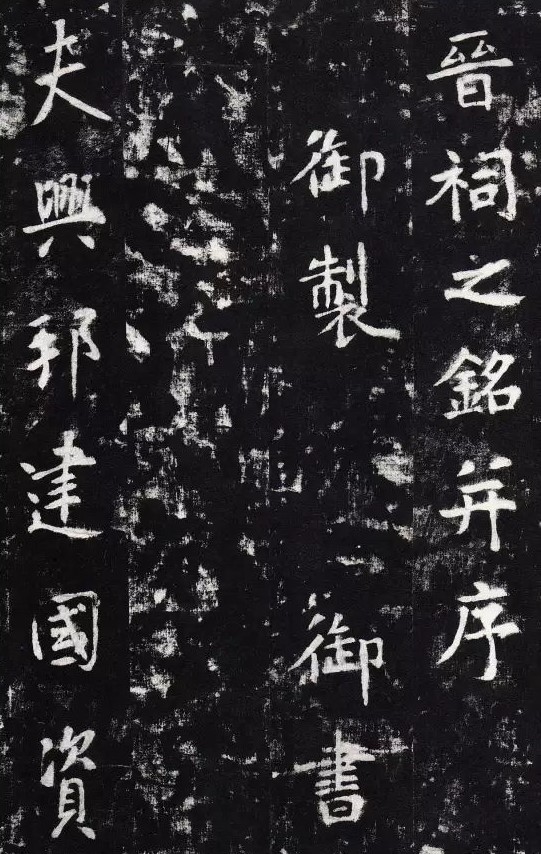 晉祠之銘并序
御製 御書
夫興邦建國資